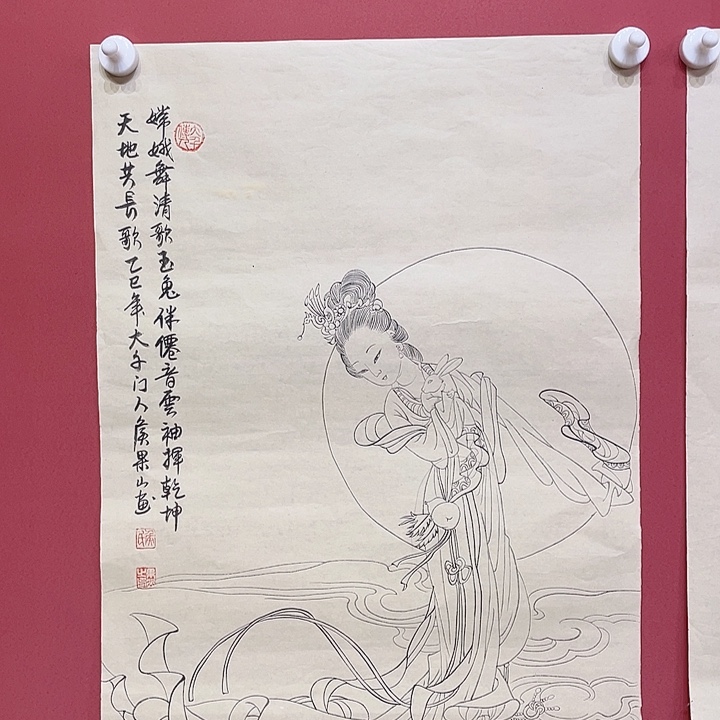 嫦娥舞清歌玉兔伴僊音雲袖揮乾坤
天地共長歌乙巳年大千门人侯果山画